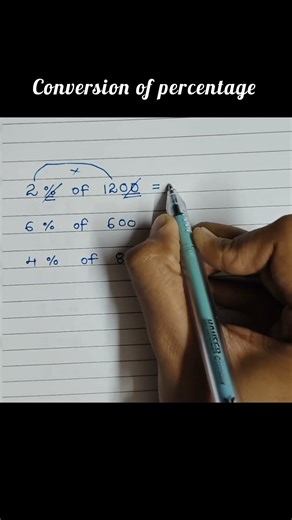 Conversion of percentage
×
2 % of 1200 =
6 % of 600
4 % of 8
HAUSER